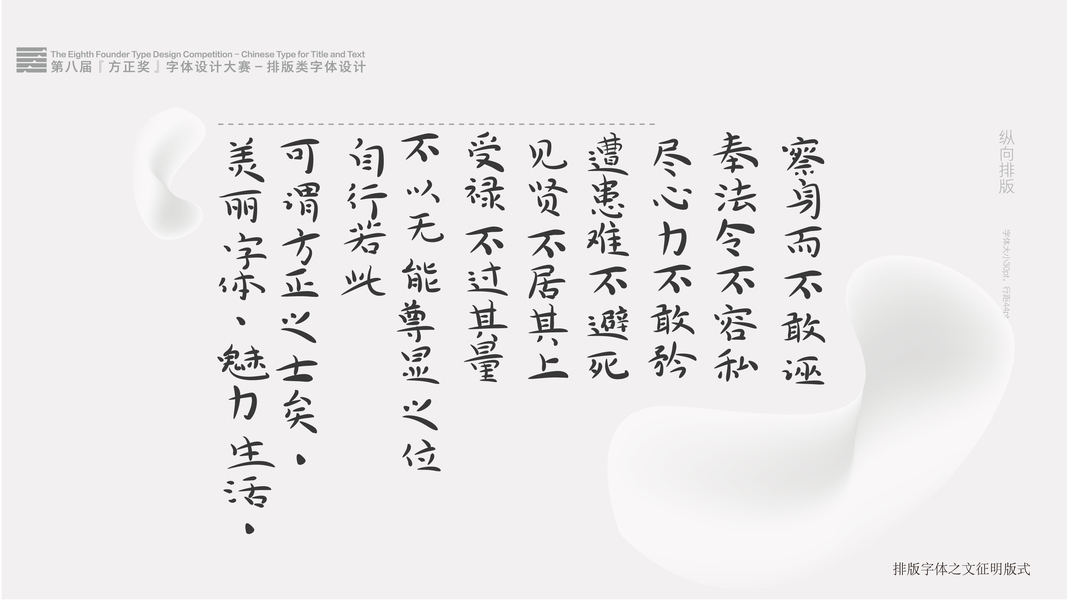 The Eighth Founder Type Design Competition – Chinese Type for Title and Text
第八届『方正奖』字体设计大赛 – 排版类字体设计
纵向排版
察身而不敢诬
奉法令不容私
尽心力不敢矜
遭患难不避死
见贤不居其上
受禄不过其量
不以无能尊显之位
自行若此
可谓方正之士矣.
美丽字体、魅力生活.
排版字体之文征明版式